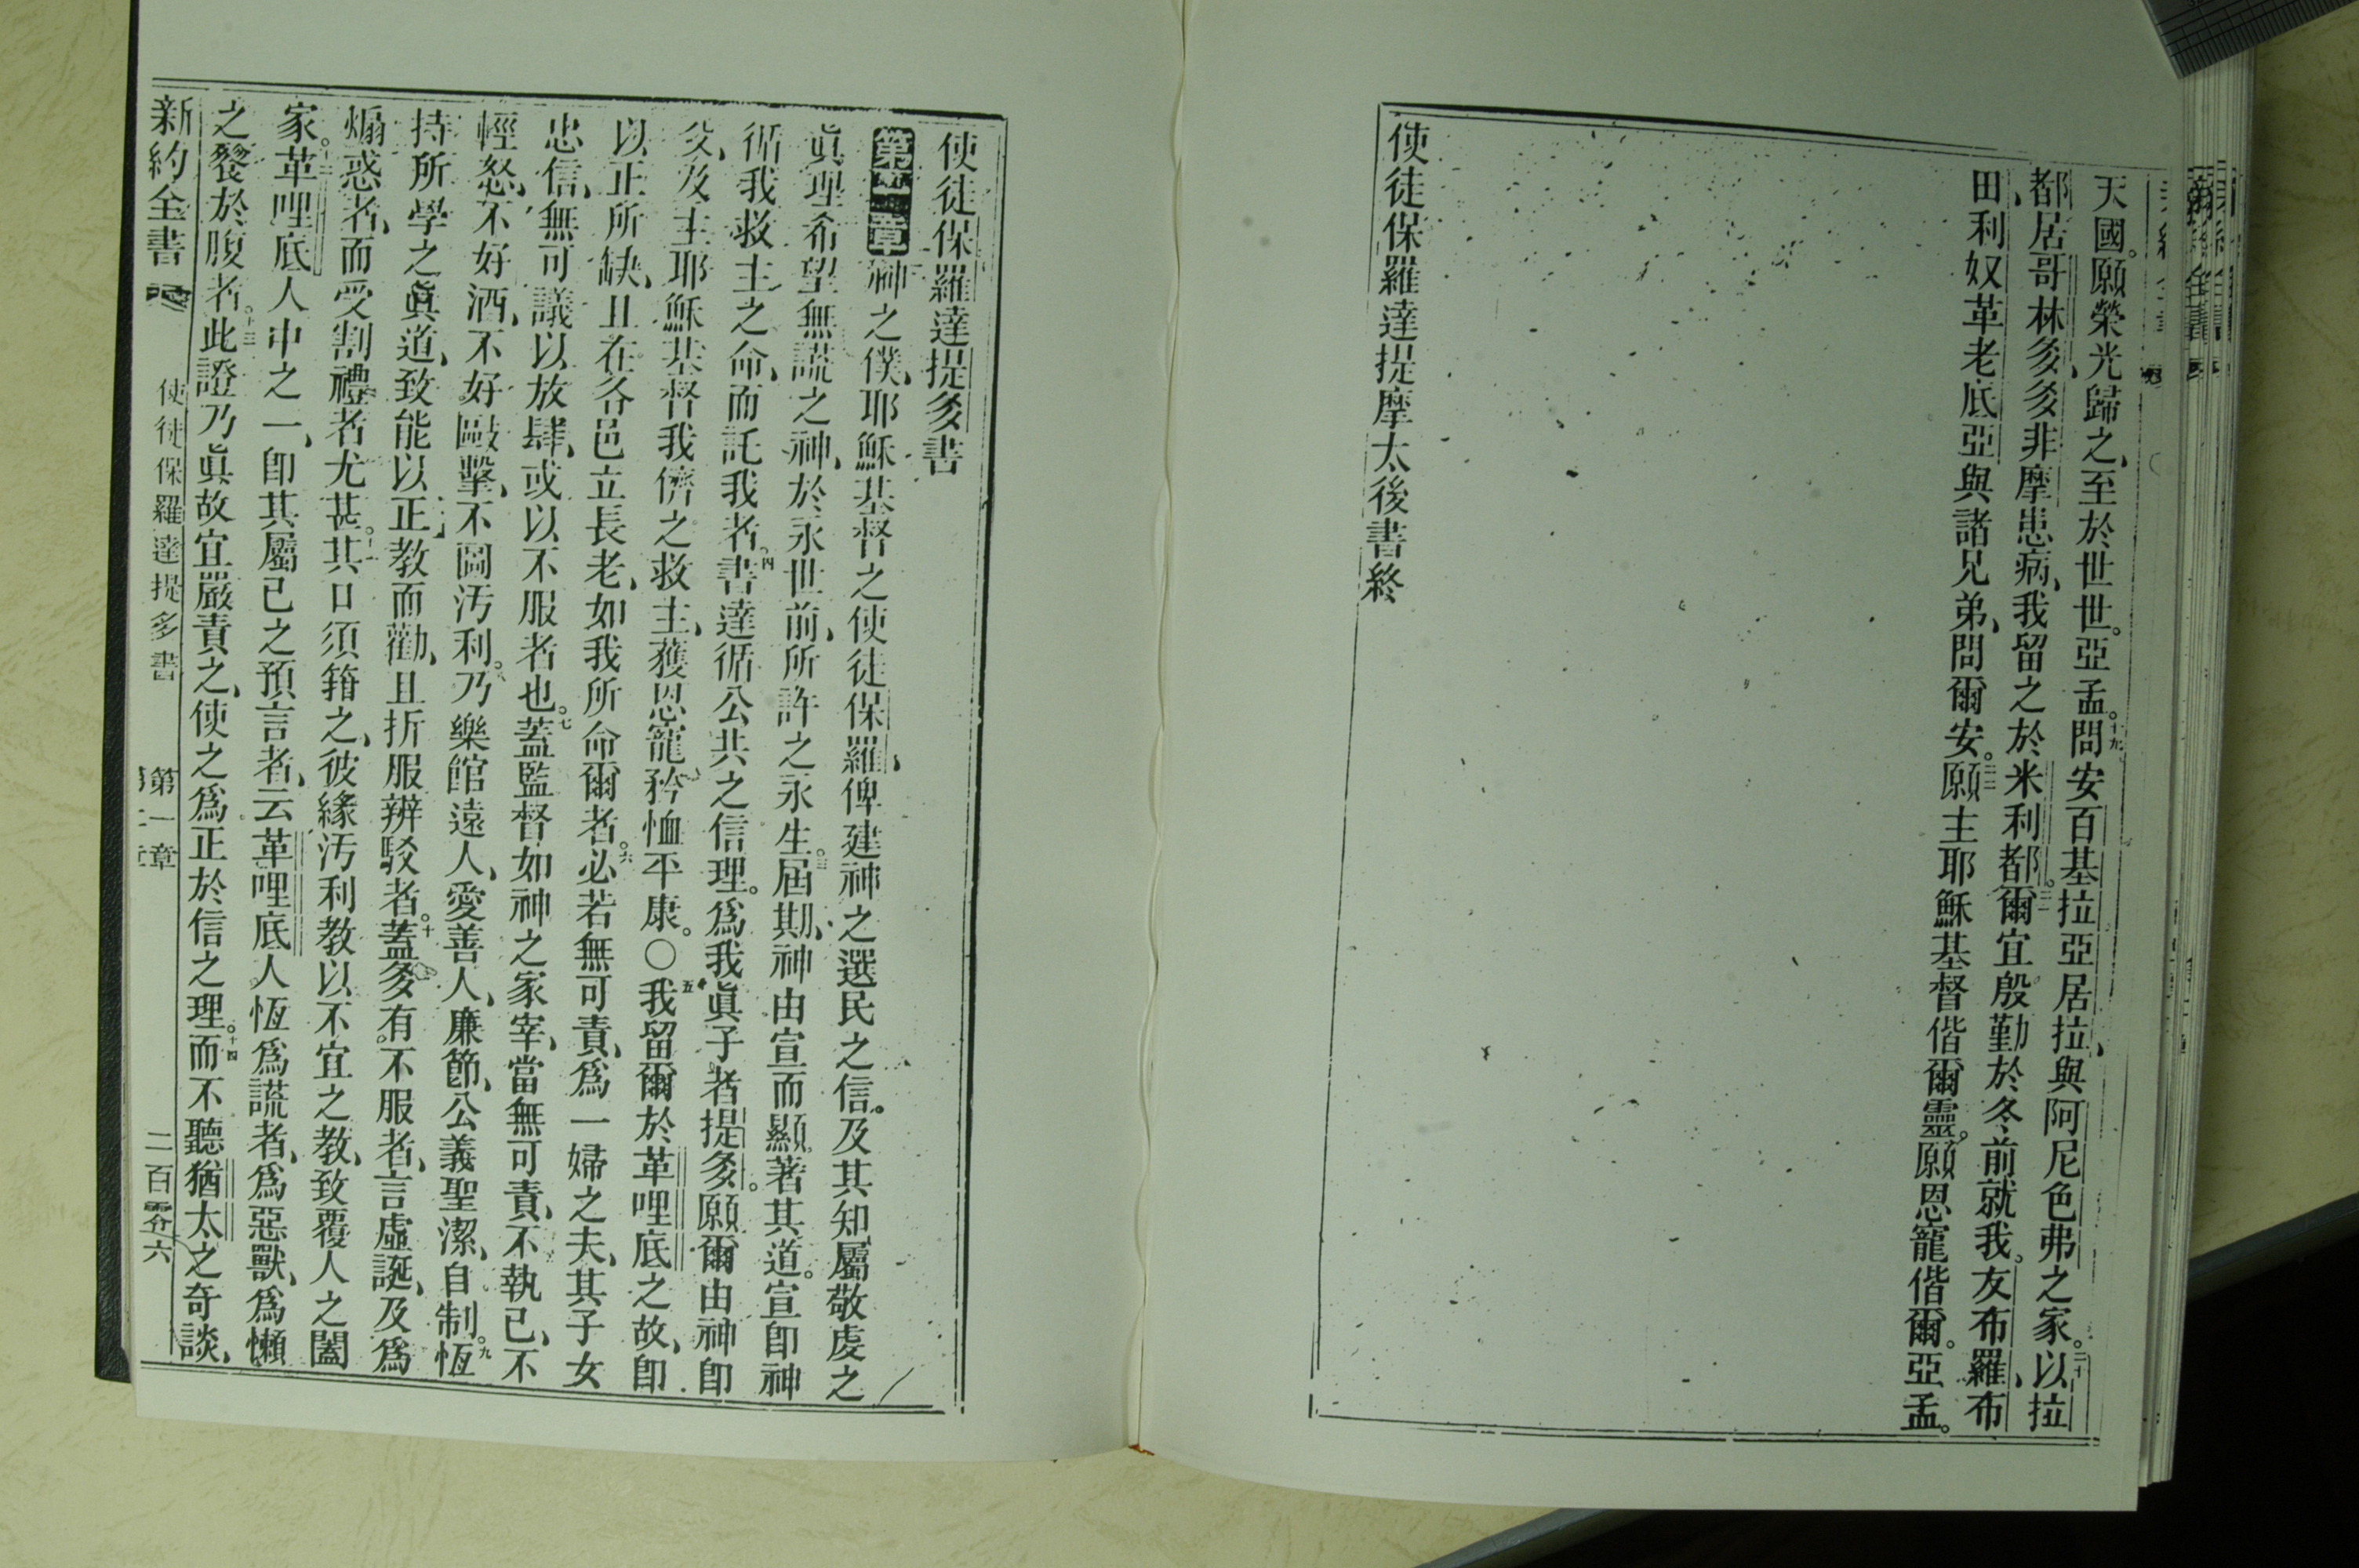 天國。願榮光歸之、至於世世。亞孟。十九問安百基拉亞居拉、與阿尼色弗之家。二十以拉
都、居哥林多、多非摩患病、我留之於米利都。二一爾宜殷勤於冬前就我。友布羅、布
田利奴革老底亞與諸兄弟、問爾安。二二願主耶穌基督偕爾靈。願恩寵偕爾。亞孟。
使徒保羅達提摩太後書終
使徒保羅達提多書
第一章 神之僕、耶穌基督之使徒保羅、俾建神之選民之信。及其知屬敬虔之
眞理希望無謊之神、於永世前、所許之永生。三屆期、神由宣而顯著其道。宣卽神
循我救主之命、而託我者。四書達循公共之信理。爲我眞子者提多。願爾由神卽
父、及主耶穌基督我儕之救主、獲恩寵矜恤平康。〇五我留爾於革哩底之故、卽
以正所缺、且在各邑立長老、如我所命爾者。六必若無可責、爲一婦之夫、其子女
忠信、無可議以放肆、或以不服者也。七蓋監督如神之家宰、當無可責、不執已、不
輕怒、不好酒、不好毆擊、不圖污利。八乃樂館遠人、愛善人、廉節、公義聖潔、自制。九恆
持所學之眞道、致能以正教而勸、且折服辨駁者。十蓋多有不服者、言虛誕、及爲
煽惑者、而受割禮者尤甚。十一其口須箝之、彼緣污利教以不宜之教、致覆人之闔
家。十二革哩底人中之一、卽其屬已之預言者、云革哩底人恆爲謊者、爲惡獸、爲懶
之餮於腹者。十三此證乃眞故宜嚴責之、使之爲正於信之理。十四而不聽猶太之奇談、
新約全書 使徒保羅達提多書 第一章 二百零六